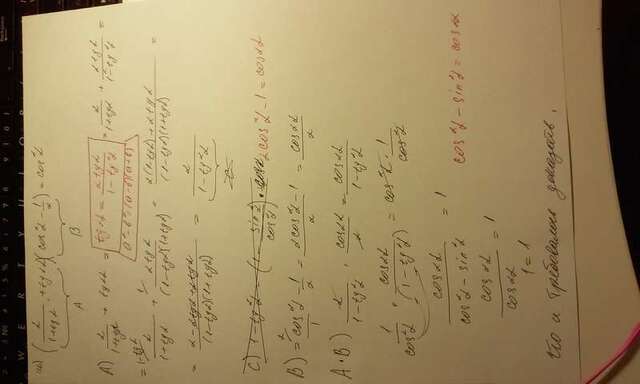 (2/(1+tgα) + tg2α)(cos²α − 1/2) = cos²α
A B
A) 2/(1+tgα) + tg2α = tg2α = 2tgα/(1−tg²α) = 2/(1+tgα) + 2tgα/(1−tg²α) =
a²−b²=(a−b)(a+b)
= 2/(1+tgα) + 2tgα/((1−tgα)(1+tgα)) = (2(1−tgα)+2tgα)/((1−tgα)(1+tgα)) =
= (2−2tgα+2tgα)/((1−tgα)(1+tgα)) = 2/(1−tg²α)
C
C) 1−tg²α = (1 − sin²α/cos²α) · cos2α 2cos²α−1=cos2α
B) = cos²α/1 − 1/2 = (2cos²α−1)/2 = cos2α/2
A·B) 2/(1−tg²α) · cos2α/2 = cos2α/(1−tg²α)
1/cos²α · cos2α/(1−tg²α) = cos²α · 1/cos²α
cos2α/(cos²α−sin²α) = 1 cos²α−sin²α=cos2α
cos2α/cos2α = 1
1=1
Что и требовалось доказать.